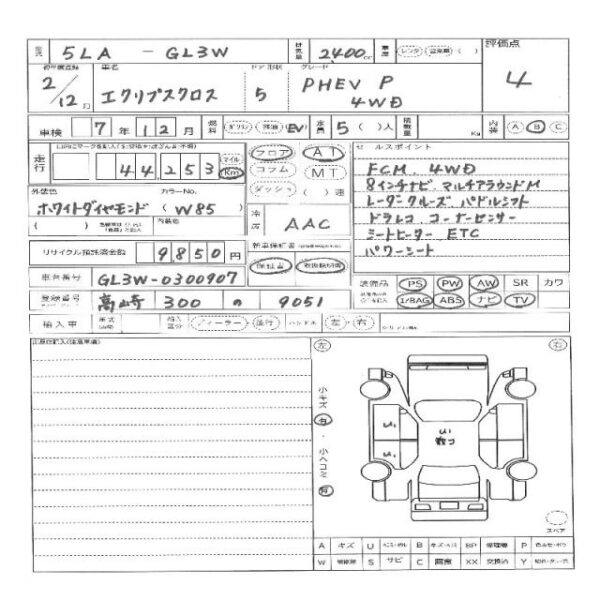 型式 5LA - GL3W 排気量 2400cc 車歴 レンタ 自家用 ( ) 評価点
初年度登録 車名 ドア形状 グレード
2/12月 エクリプスクロス 5 PHEV P 4WD 4
車検 7年12月 燃料 ガソリン 軽油 EV 定員 5 ( )人 積載量 Kg 内装 A B C
走行 44253 マイル Km フロア AT セールスポイント
コラム MT
FCM. 4WD
外装色 カラーNo. ダッシュ ( )速
8インチナビ マルチアラウンドM
ホワイトダイヤモンド (W85) 冷房 AAC
レーダークルーズ パドルシフト
ドラレコ コーナーセンサー
シートヒーター ETC
リサイクル預託済金額 9850円 新車保証書
パワーシート
保証書 取扱説明書
車台番号 GL3W-0300907 装備品 PS PW AW SR カワ
登録番号 高崎 300 の 9051 I/BAG ABS ナビ TV
輸入車 年式 輸入区分 ディーラー・並行 ハンドル 左・右
左 右
小キズ 有・小ヘコミ 有
しい しい
しい 散つ
スペア
A キズ U B BP P
W S サビ C 腐食 XX 交換済 Y